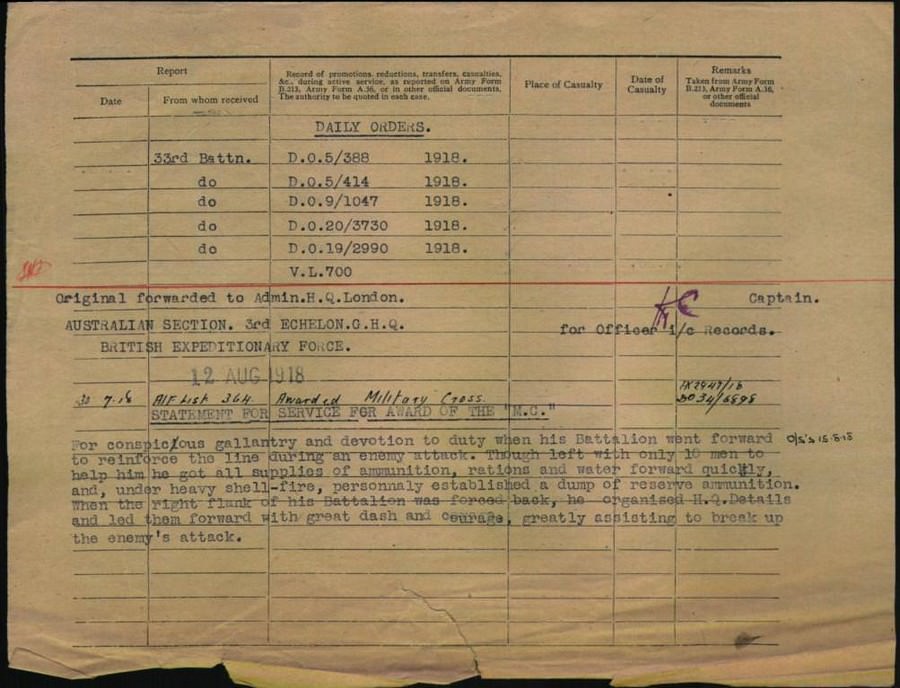 Report
Record of promotions, reductions, transfers, casualties,
&c., during active service, as reported on Army Form
B.213, Army Form A.36, or in other official documents.
The authority to be quoted in each case.
Place of Casualty
Date of
Casualty
Remarks
Taken from Army Form
B.213, Army Form A.36,
or other official
documents
Date
From whom received
DAILY ORDERS.
33rd Battn. D.O.5/388 1918.
do D.O.5/414 1918.
do D.O.9/1047 1918.
do D.O.20/3730 1918.
do D.O.19/2990 1918.
V.L.700
Original forwarded to Admin.H.Q.London. Captain.
AUSTRALIAN SECTION. 3rd ECHELON.G.H.Q. for Officer i/c Records.
BRITISH EXPEDITIONARY FORCE.
12 AUG 1918
30 7.18 AIF List 364. Awarded Military Cross.
STATEMENT FOR SERVICE FOR AWARD OF THE "M.C."
For conspicious gallantry and devotion to duty when his Battalion went forward
to reinforce the line during an enemy attack. Though left with only 10 men to
help him he got all supplies of ammunition, rations and water forward quickly,
and, under heavy shell-fire, personnaly established a dump of reserve ammunition.
When the right flank of his Battalion was forced back, he organised H.Q.Details
and led them forward with great dash and courage, greatly assisting to break up
the enemy's attack.